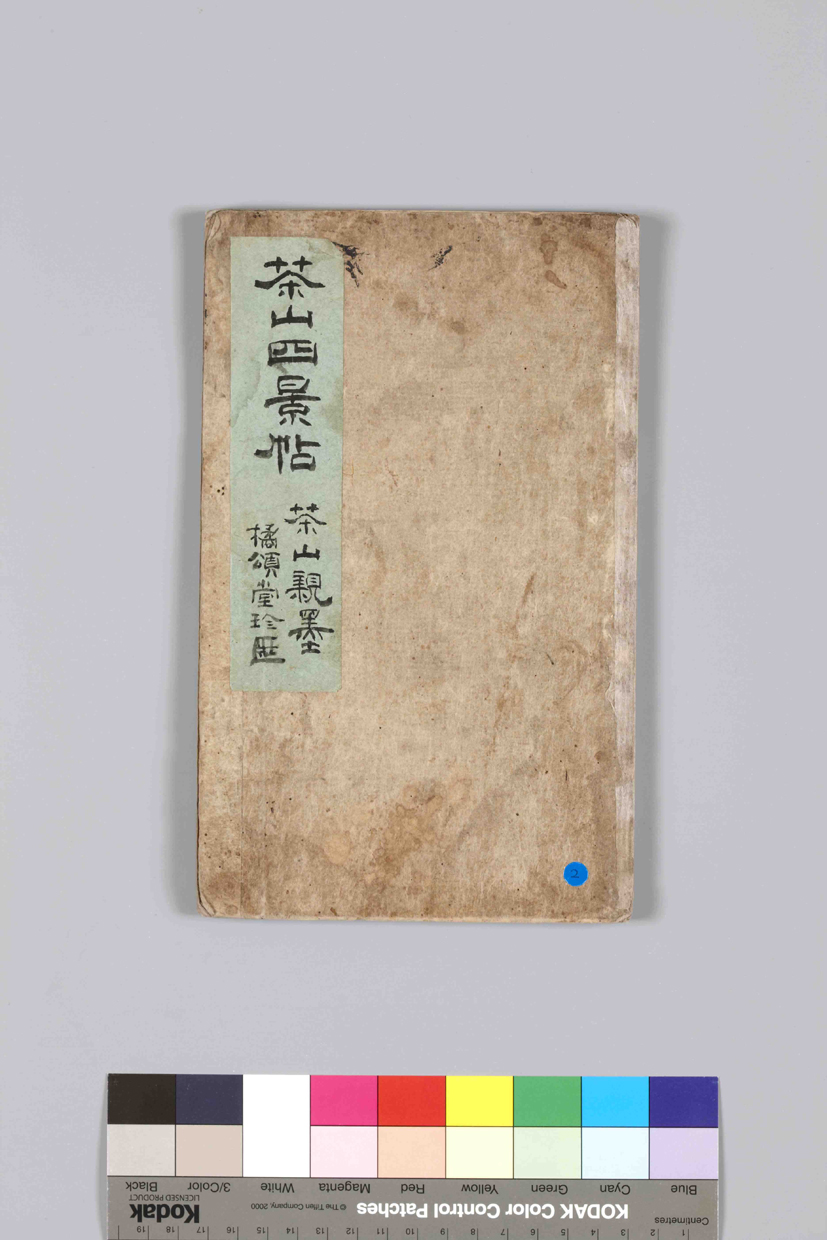 茶山四景帖
茶山親墨
橘頌堂珍匧
2
Blue
Cyan
Green
Yellow
Red
Magenta
White
3/Color
Black
KODAK Color Control Patches
© The Tiffen Company, 2000
Kodak
LICENSED PRODUCT
Centimetres
1 2 3 4 5 6 7 8 9 10 11 12 13 14 15 16 17 18 19